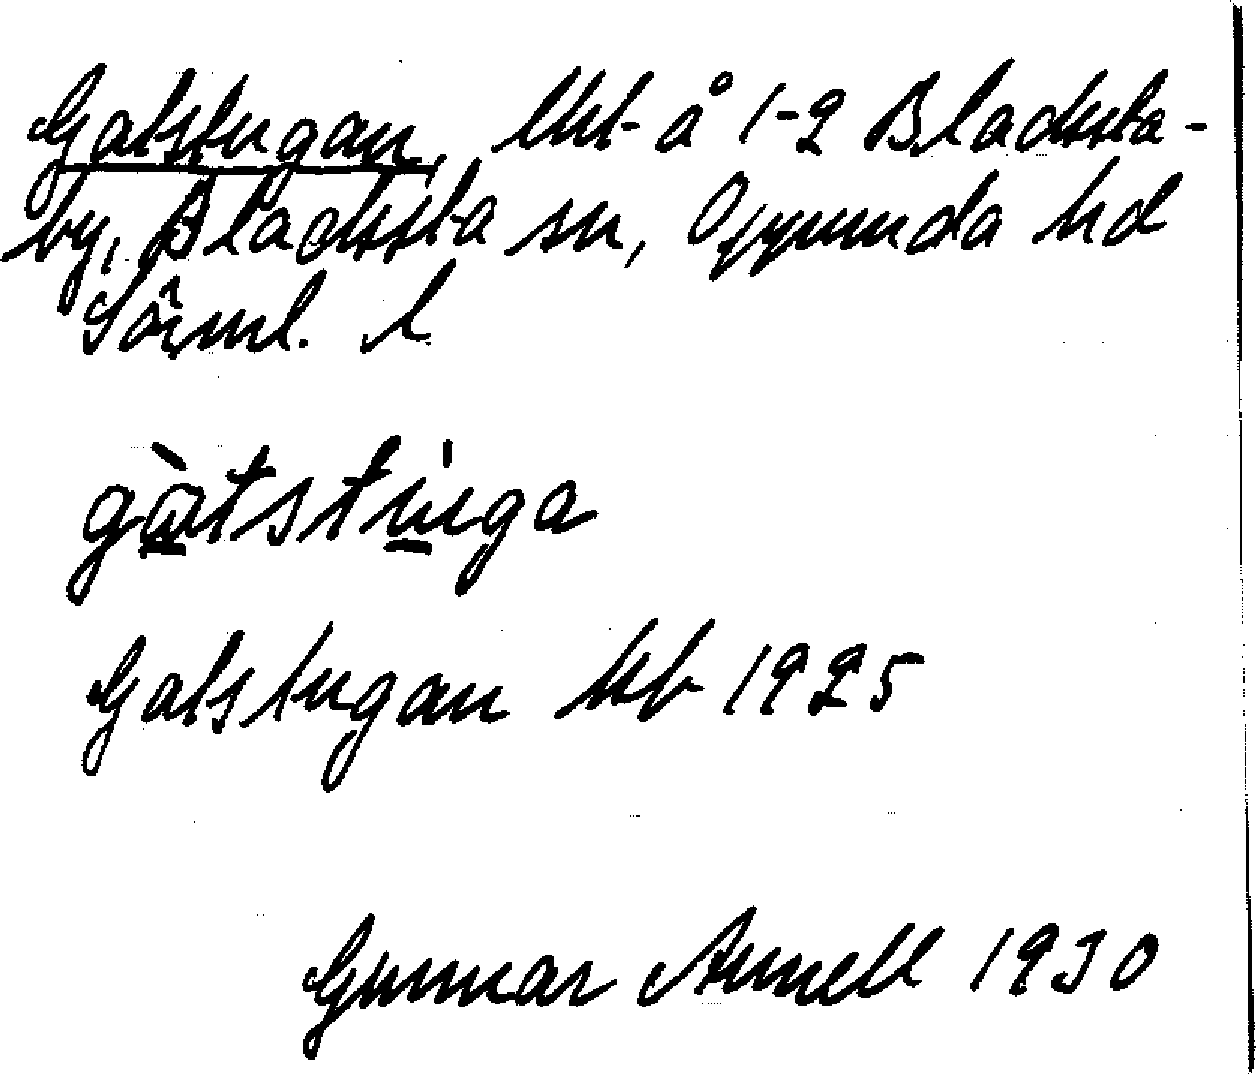 Gatstugan, lht å 1-2 Blacksta-
by, Blacksta sn, Oppunda hd
Sörml. l
gàtstùga
Gatstugan Mb 1925
Gunnar Arnell 1930